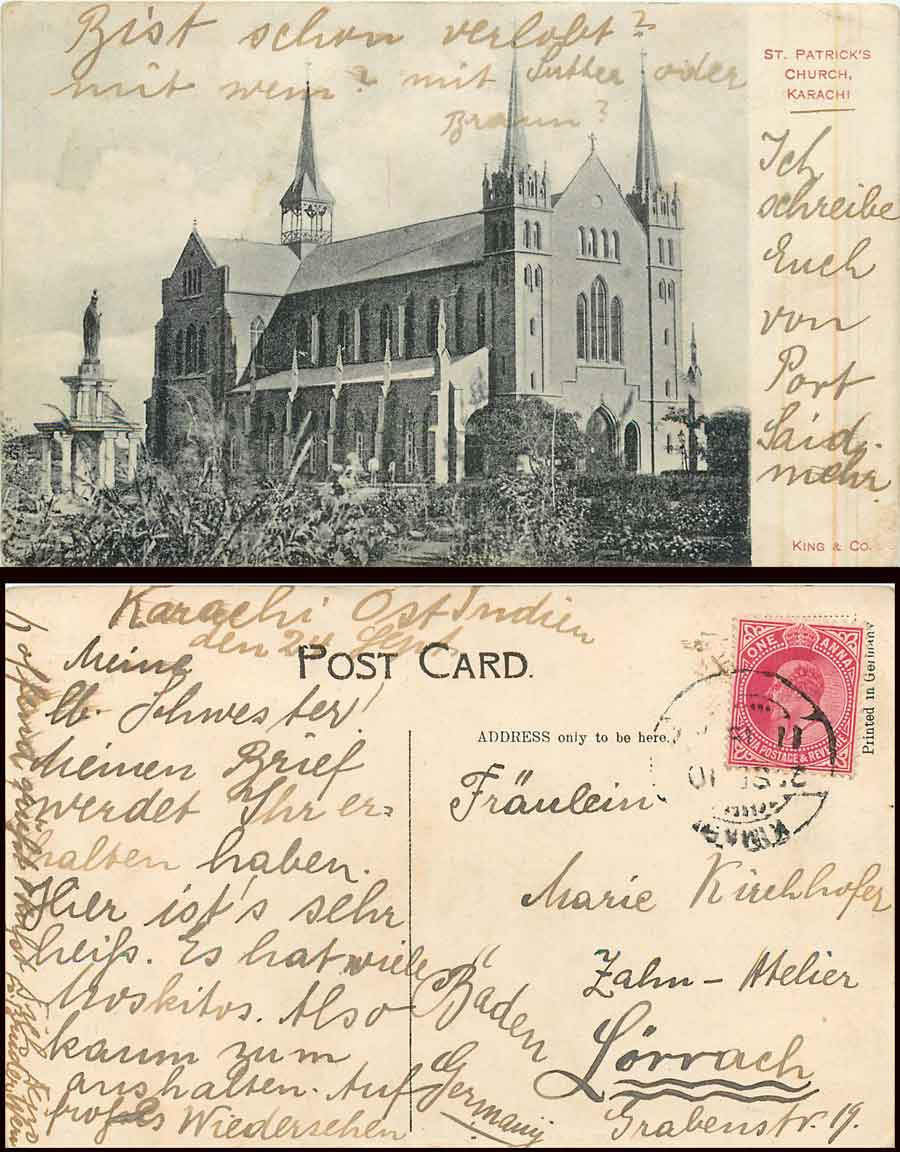 Bist schon verlobt?
mit wem? mit Sutter oder
Braun?
ST. PATRICK'S
CHURCH,
KARACHI
Ich
schreibe
Euch
von
Port
Said
mehr.
KING & CO.
Karachi Ost Indien
den 24 Sept.
POST CARD.
Meine
lb. Schwester!
Meinen Brief
werdet Ihr er-
halten haben.
Hier ist's sehr
heiß. Es hat viele
Moskitos. Also
kaum zum
aushalten. Auf
frohes Wiedersehen
hoffend grüßt
ADDRESS only to be here.
ONE ANNA
INDIA POSTAGE & REVENUE
Printed in Germany
Fräulein
Marie Kirchhofer
Zahn-Atelier
Lörrach
Grabenstr. 19.
Baden
Germany